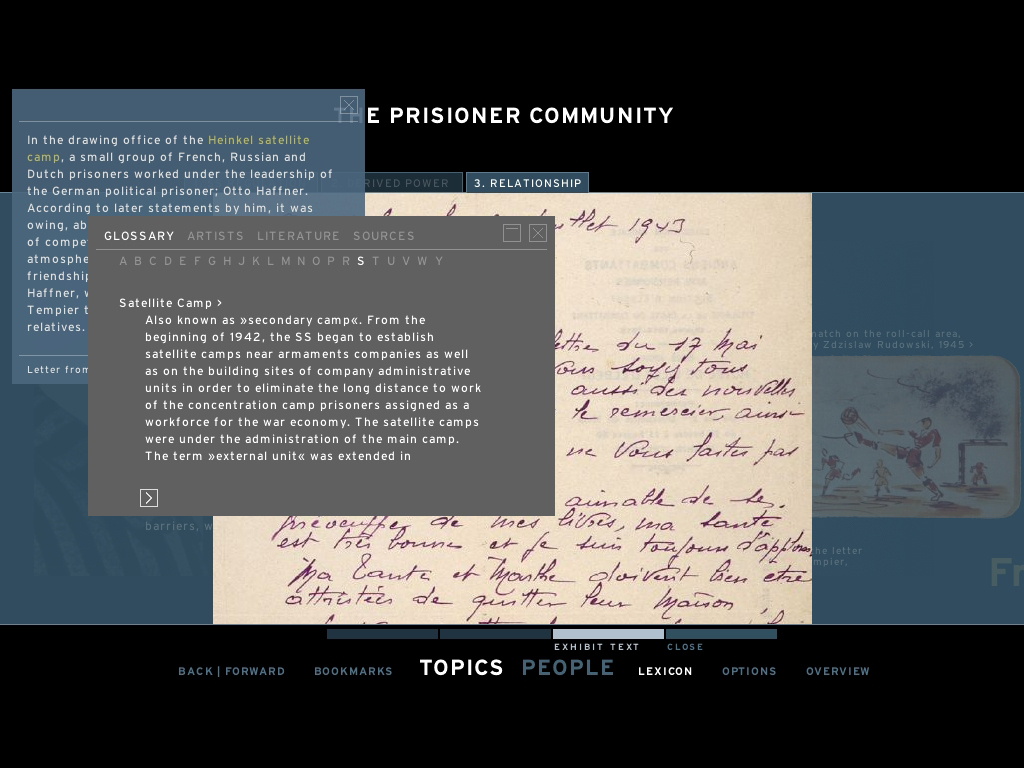 THE PRISIONER COMMUNITY
In the drawing office of the Heinkel satellite
camp, a small group of French, Russian and
Dutch prisoners worked under the leadership of
the German political prisoner; Otto Haffner.
According to later statements by him, it was
owing, ab
of compe
atmosphe
friendship
Haffner, w
Tempier t
relatives.
Letter from
RIVED POWER
3. RELATIONSHIP
GLOSSARY ARTISTS LITERATURE SOURCES
A B C D E F G H J K L M N O P R S T U V W Y
Satellite Camp >
Also known as »secondary camp«. From the
beginning of 1942, the SS began to establish
satellite camps near armaments companies as well
as on the building sites of company administrative
units in order to eliminate the long distance to work
of the concentration camp prisoners assigned as a
workforce for the war economy. The satellite camps
were under the administration of the main camp.
The term »external unit« was extended in
barriers, w
1943
lettres du 17 Mai
vous soyez tous
aussi des nouvelles
te remercier, ainsi
ne vous faites pas
aimable de
de mes lièvres, ma santé
est très bonne et je suis toujours
Ma Tante et Marthe doivent bien être
attristées de quitter leur Maison,
match on the roll-call area,
y Zdzislaw Rudowski, 1945 >
the letter
mpier,
Fr
EXHIBIT TEXT CLOSE
BACK | FORWARD BOOKMARKS TOPICS PEOPLE LEXICON OPTIONS OVERVIEW